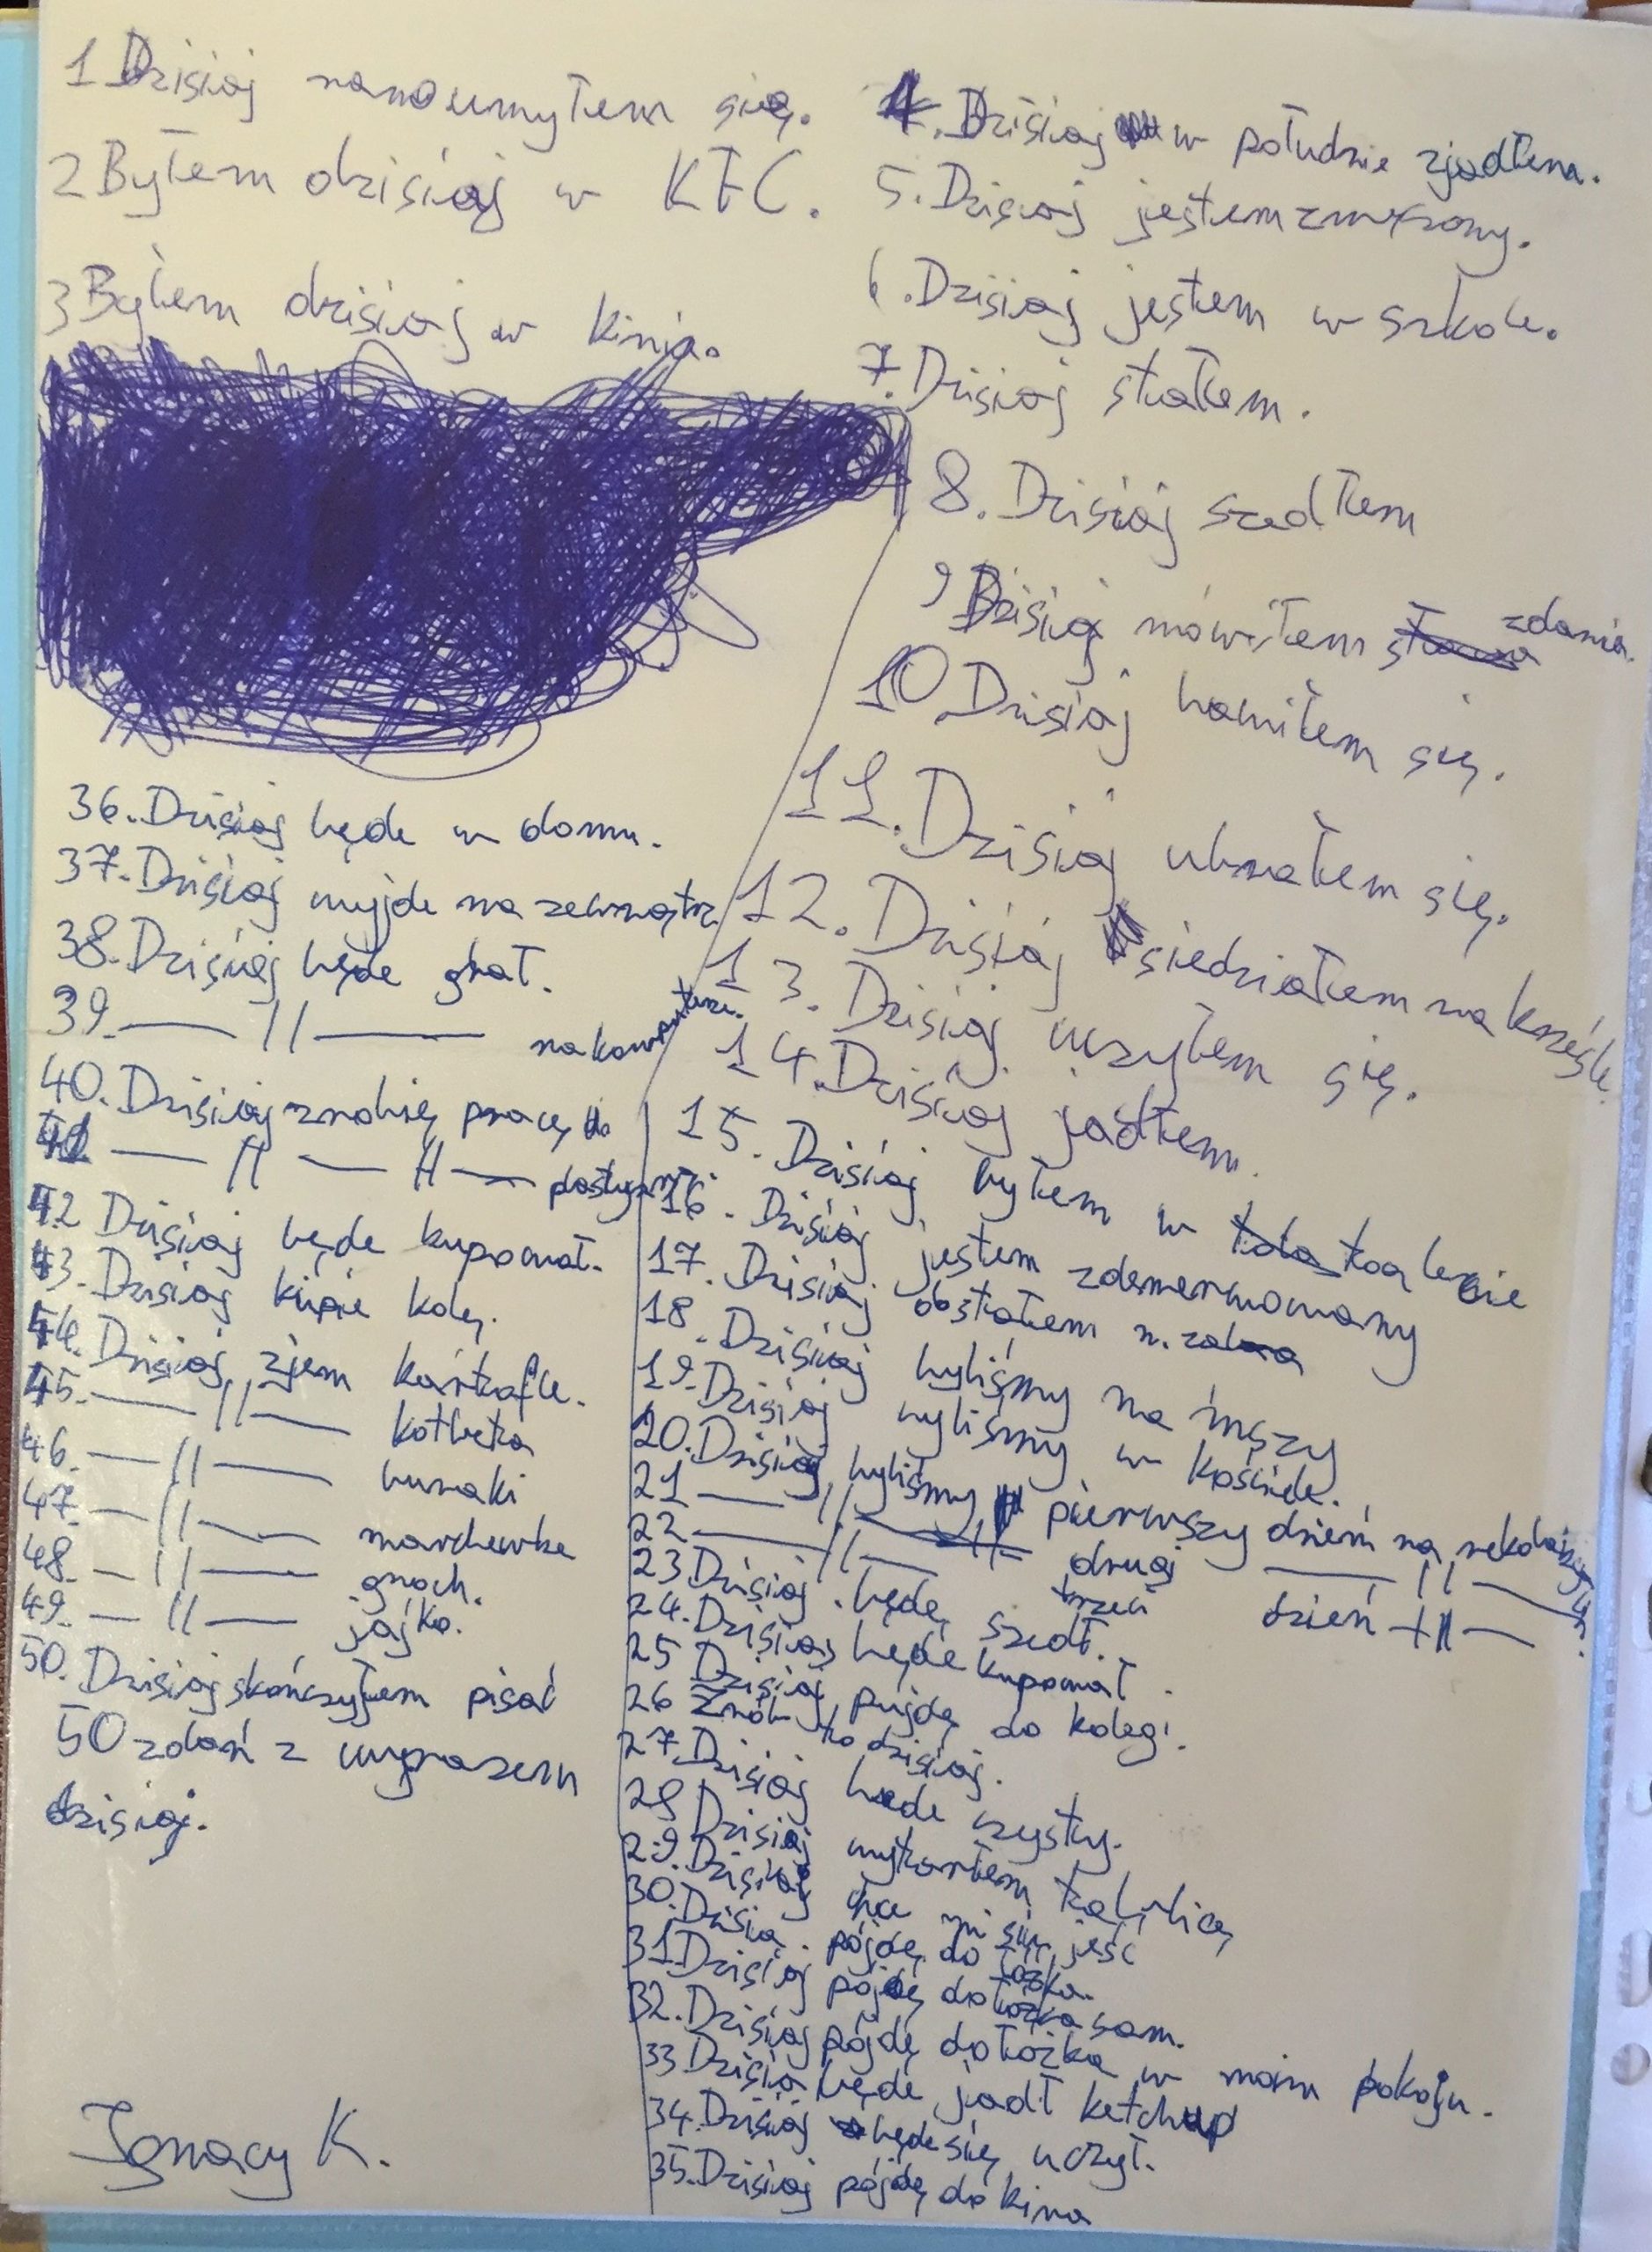 1 Dzisiaj rano umyłem się.
2 Byłem dzisiaj w KFC.
3 Byłem dzisiaj w kinie.
4. Dzisiaj w południe zjadłem.
5. Dzisiaj jestem
6. Dzisiaj jestem w szkole.
7. Dzisiaj stałem.
8. Dzisiaj szedłem
9 Dzisiaj mówiłem zdania.
10 Dzisiaj bawiłem się.
11. Dzisiaj ubrałem się.
12. Dzisiaj siedziałem na krześle
13. Dzisiaj uczyłem się.
14. Dzisiaj jadłem.
15. Dzisiaj byłem w toalecie
16. Dzisiaj jestem zdenerwowany
17. Dzisiaj dostałem
18. Dzisiaj byliśmy na mszy
19. Dzisiaj byliśmy w kościele.
20. Dzisiaj byliśmy pierwszy dzień na
21 — // — drugi — // —
22 — // — trzeci dzień — // —
23 Dzisiaj będę szedł.
24. Dzisiaj będę kupował.
25 Dzisiaj pujdę do kolegi.
26 Znów to dzisiaj.
27. Dzisiaj będe czysty.
28 Dzisiaj wytarłem tablicę
29. Dzisiaj chce mi się jeść
30. Dzisia. pójdę do łóżka.
31 Dzisiaj pójdę do łóżka sam.
32. Dzisiaj pójdę do łóżka w moim pokoju.
33 Dzisia będe jadł ketchup
34. Dzisiaj będe się uczył.
35. Dzisiaj pójdę do kina
36. Dzisiaj będe w domu.
37. Dzisiaj wyjde na zewnątrz
38. Dzisiaj będe grał.
39. — // — na komputerze.
40. Dzisiaj zrobię pracę
41 — // — // — plastyczną.
42 Dzisiaj będe kupował.
43. Dzisiaj kupie kolę.
44. Dzisiaj zjem kartofle.
45. — // — kotleta
46. — // — buraki
47. — // — marchewke
48. — // — groch.
49. — // — jajko.
50. Dzisiaj skończyłem pisać
50 zdań z wyrazem
dzisiaj.
Ignacy K.